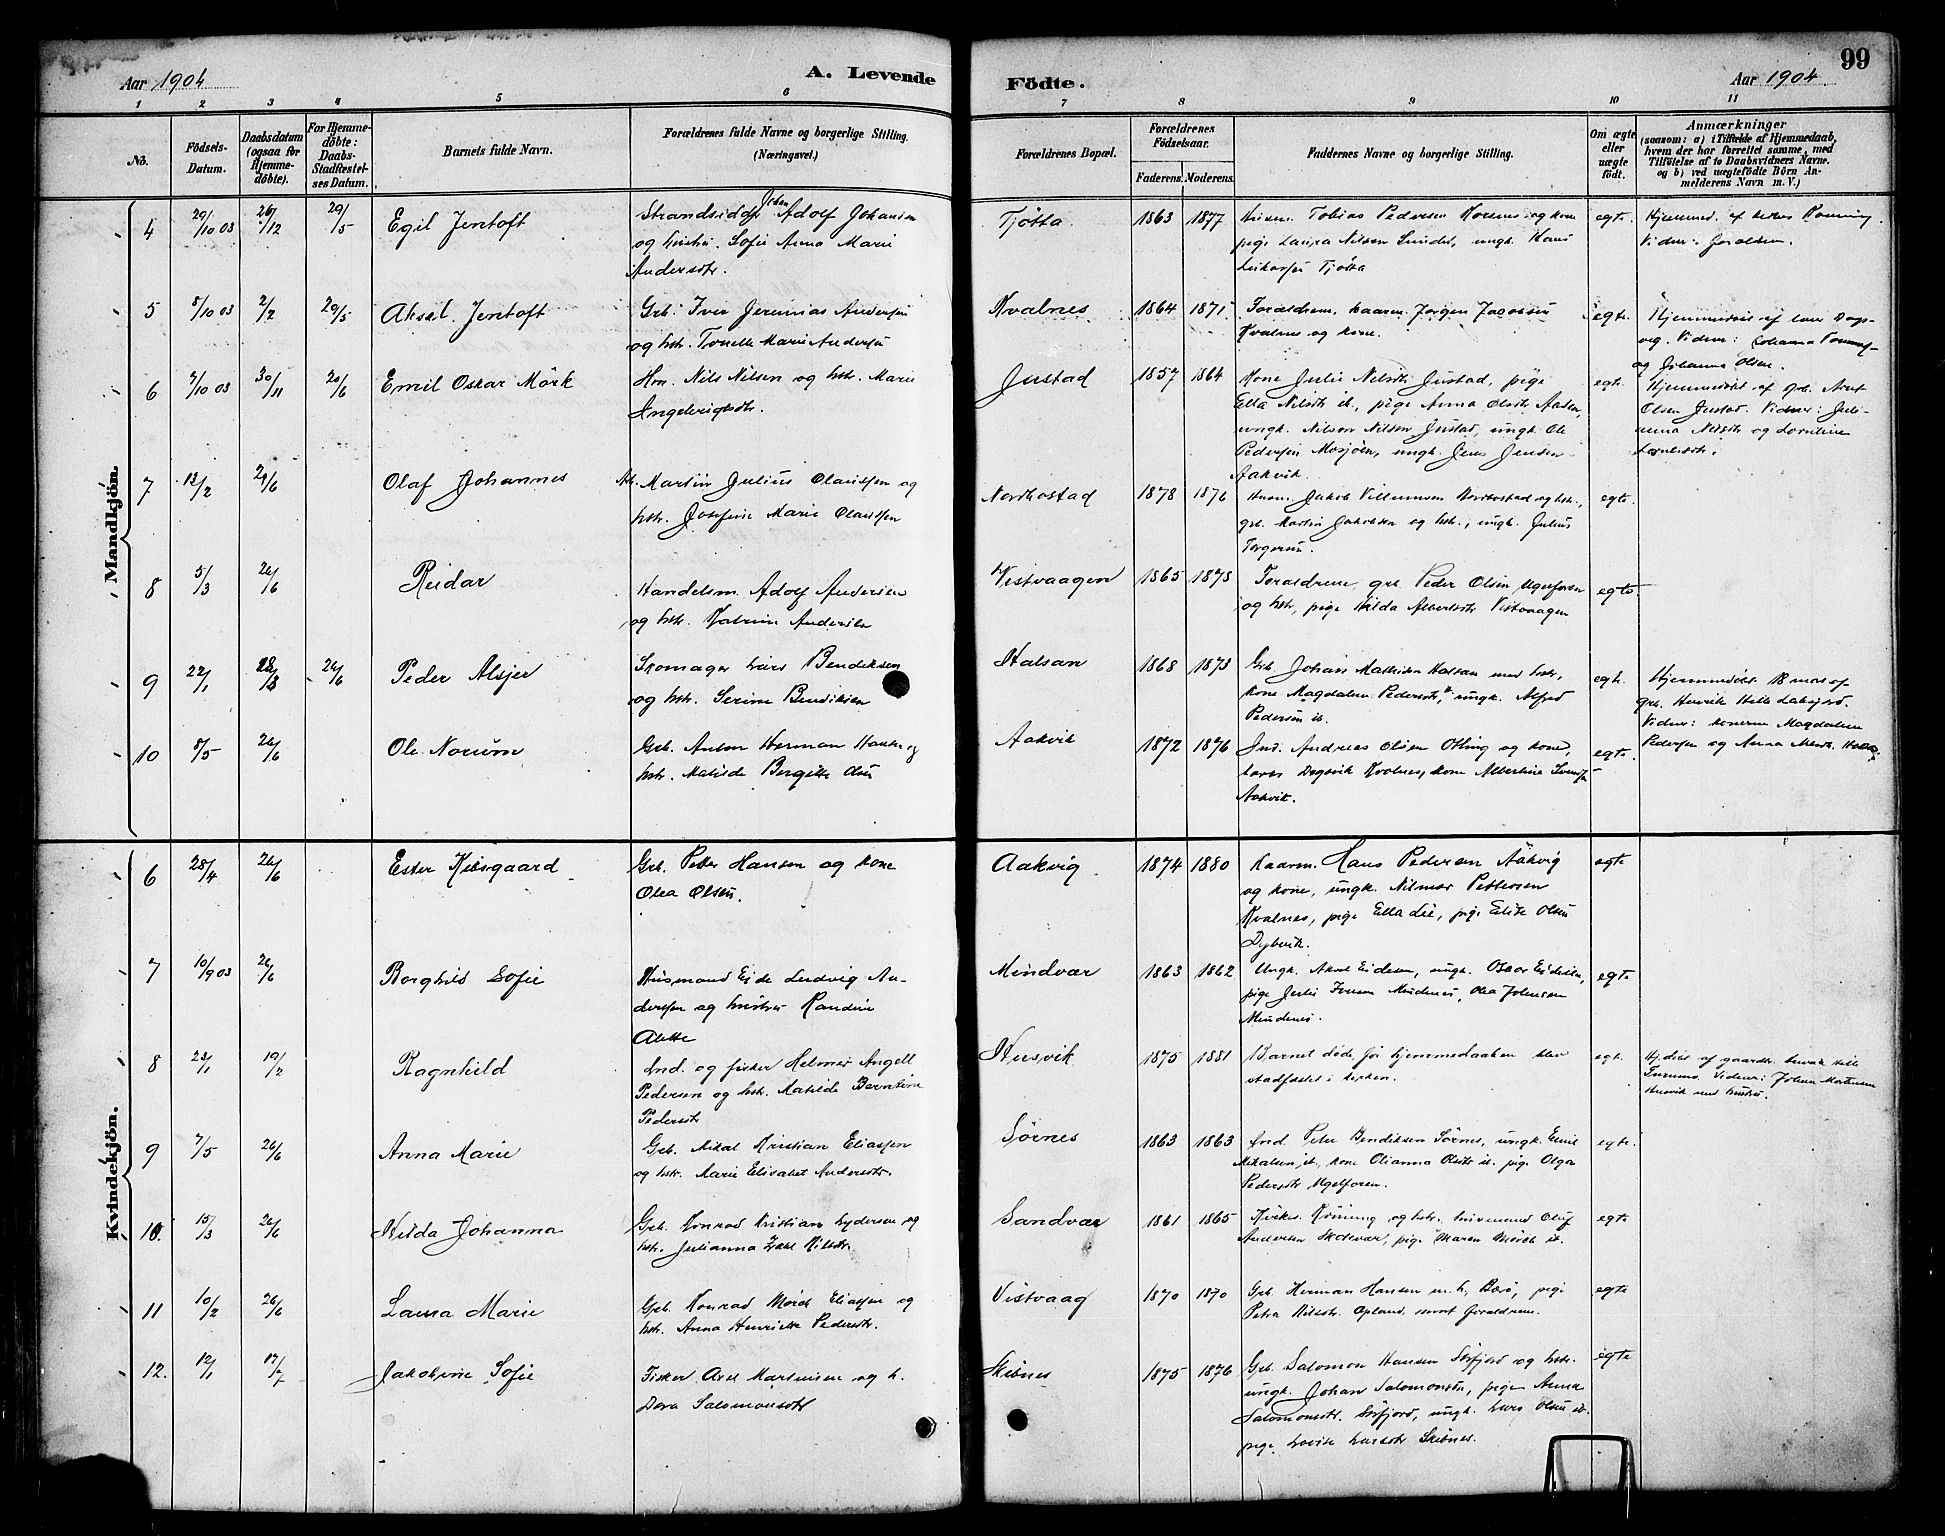 99
Aar 1904
A. Levende
Födte.
Aar 1904
1 2 3 4 5 6 7 8 9 10 11
No.
Födsels-
Datum.
Daabsdatum
(ogsaa for
Hjemme-
döbte).
For Hjemme-
döbte:
Daabs-
Stadfæstel-
ses Datum.
Barnets fulde Navn.
Forældrenes fulde Navne og borgerlige Stilling.
(Næringsvei.)
Forældrenes Bopæl.
Forældrenes
Födselsaar.
Faderens. Moderens.
Faddernes Navne og borgerlige Stilling.
Om ægte
eller
uægte
födt.
Anmærkninger
(saasom: a) i Tilfælde af Hjemmedaab,
hvem der har forrettet samme, med
Tilföielse af to Daabsvidners Navne.
og b) ved uægtefödte Börn An-
melderens Navn m. V.)
Mandkjön.
4 29/10 03 26/12 29/5 Egil Jentoft
Strandsidder Adolf Johansen
og hustru Sofie Anna Marie
Andersdtr.
Tjötta 1863 1877
Tobias Pedersen og kone
pige Laura Nilsen Sundet, ungk. Hans
Tjötta
egte.
Hjemmed. af
Vidner:
5 5/10 03 2/2 29/5 Aksel Jentoft
Grb. Iver Jeremias Andersen
og hstr. Marie Andersen
Kvalnes 1864 1871
Forældrene, kaarm. Jörgen Jacobsen
Kvalnes og kone.
egte.
Hjemmedöbt af
Vidner: Johanna
og Johanna Olsen.
6 7/10 03 30/11 20/6 Emil Oskar Mörk
Nils Nilsen og hstr. Marie
Ingebrigtsdtr.
Justad 1857 1864
Kone Julie Nilsdtr Justad, pige
Ella Nilsdtr ib., pige Anna Olsdtr Aasen,
ungk. Nilson Nilsen Justad, ungk. Ole
Pedersen Mosjöen, ungk. Jens Jensen
Aakvik.
egte
Hjemmedöbt af grb.
Olsen Justad. Vidner: Juli-
anna Nilsdtr og
7 13/2 29/6 Olaf Johannes
Martin Julius Olaussen og
hstr. Josefine Marie Olaussen
Nordbostad 1878 1876
Husm. Jakob Villumsen Nordbostad og hstr.,
grb. Martin Jakobsen og hstr., ungk. Julius
Torgersen.
egte.
8 5/3 26/6 Reidar
Handelsm. Adolf Andersen
og hstr. Katrine Andersen
Vistvaagen 1865 1878
Forældrene, grb. Peder Olsen Ugelforen
og hstr, pige Hilda Albertsdtr Vistvaagen
egte.
9 22/1 18/3 26/6 Peder Alsjer
Skomager Lars Bendiksen
og hstr. Serine Bendiksen
Halsan 1868 1873
Grb. Johans Mathisen Halsan med hstr,
kone Magdalene Pedersdtr, ungk. Alfred
Pedersen ib.
egte.
Hjemmedöbt 18 mars af
grb. Henrik
Vidner: konerne Magdalene
Pedersen og Anna
10 5/5 26/6 Ole Norum
Grb. Anton Herman Hansen og
hstr. Matilde Bergitte Olsen
Aakvik 1872 1876
Ind. Andreas Olsen Otling og kone,
Lars Dagsvik Kvalnes, kone Albertine
Aakvik.
egte.
Kvindekjön.
6 28/4 26/6 Ester Kibsgaard
Grb. Petter Hansen og kone
Olea Olsen.
Aakvig 1874 1880
Kaarm. Hans Pedersen Aakvig
og kone, ungk. Hilmar Pettersen
Kvalnes, pige Ella Lie, pige Elise Olsen
Dybvik.
egte
7 10/9 03 26/6 Borghild Sofie
Husmand Eide Ludvig An-
dersen og hustru Randine
Alette
Mindvær 1863 1862
Ungk. Aksel Eidesen, ungk. Oscar Eidesen,
pige Julie Iversen Mindenes, Olea Johnsen
Mindenes.
egte
8 23/1 19/2 Ragnhild
Ind. og fisker Helmer Angell
Pedersen og hstr. Matilde Berntine
Pedersdtr
Husvik 1875 1881
Barnet döde, för hjemmedaaben blev
stadfæstet i kirken.
egte.
Hj.döbt af gaardbr.
Vidner: Johan Mortensen
Husvik med hustru.
9 7/5 26/6 Anna Marie
Grb. Mikal Kristian Eliassen
og hstr. Marie Elisabet Andersdtr.
Sörnes 1863 1863
Ind. Peter Bendiksen Sörnes, ungk. Emil
Mikalsen ib., kone Olianna Olsdtr ib. pige Olga
Pedersdtr Ugelforen.
egte.
10. 15/3 26/6 Hilda Johanna
Grb. Konrad Kristian Lydersen og
hstr. Julianna Nilsdtr.
Sandvær 1861 1865
Kirkes. Kröning og hstr. husmand Oluf
Andersen Skdevær, pige Maren Mörch ib.
egte
11 10/2 26/6 Laura Marie
Grb. Konrad Mörch Eliassen og
hstr. Anna Henriette Pedersdtr.
Vistvaag 1870 1870
Grb. Herman Hansen m. h, Bærö, pige
Petra Nilsdtr. Opland samt foreldrene.
egte
12. 12/1 17/7 Jakobine Sofie
Fisker Axel Martinisen og h.
Dora Salomonsdtr
Skibnes 1875 1876
Grb. Salomon Hansen Sörfjord og hstr.
ungk. Johan Salomonsen, pige Anna
Salomonsdtr. Sörfjord, ungk. Lars Olsen ib.
pige Lovise Larsdtr Skibnes.
egte